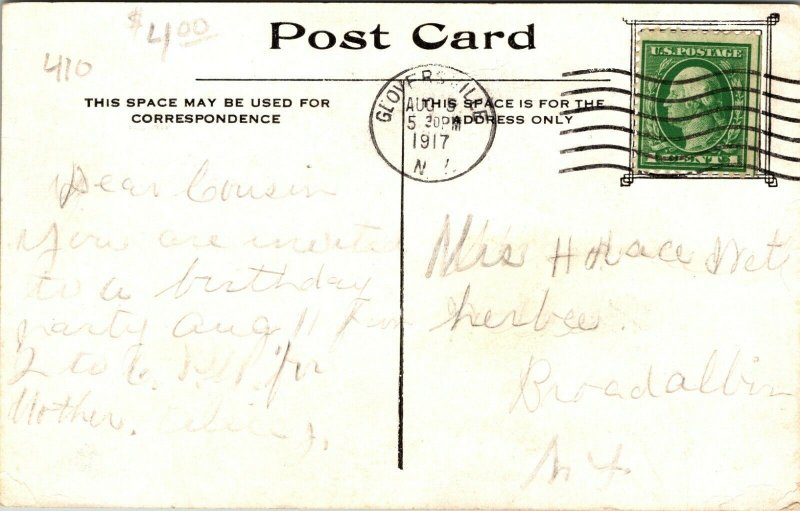 $4.00
410
Post Card
THIS SPACE MAY BE USED FOR
CORRESPONDENCE
THIS SPACE IS FOR THE
ADDRESS ONLY
GLOVERSVILLE
AUG 5
5 30PM
1917
N.Y.
U.S. POSTAGE
1 CENT 1
Dear Cousin
You are invited
to a birthday
party Aug 11 from
2 to 6. P.M. for
Mother.
Mrs Horace Wet
herbee.
Broadalbin
N Y